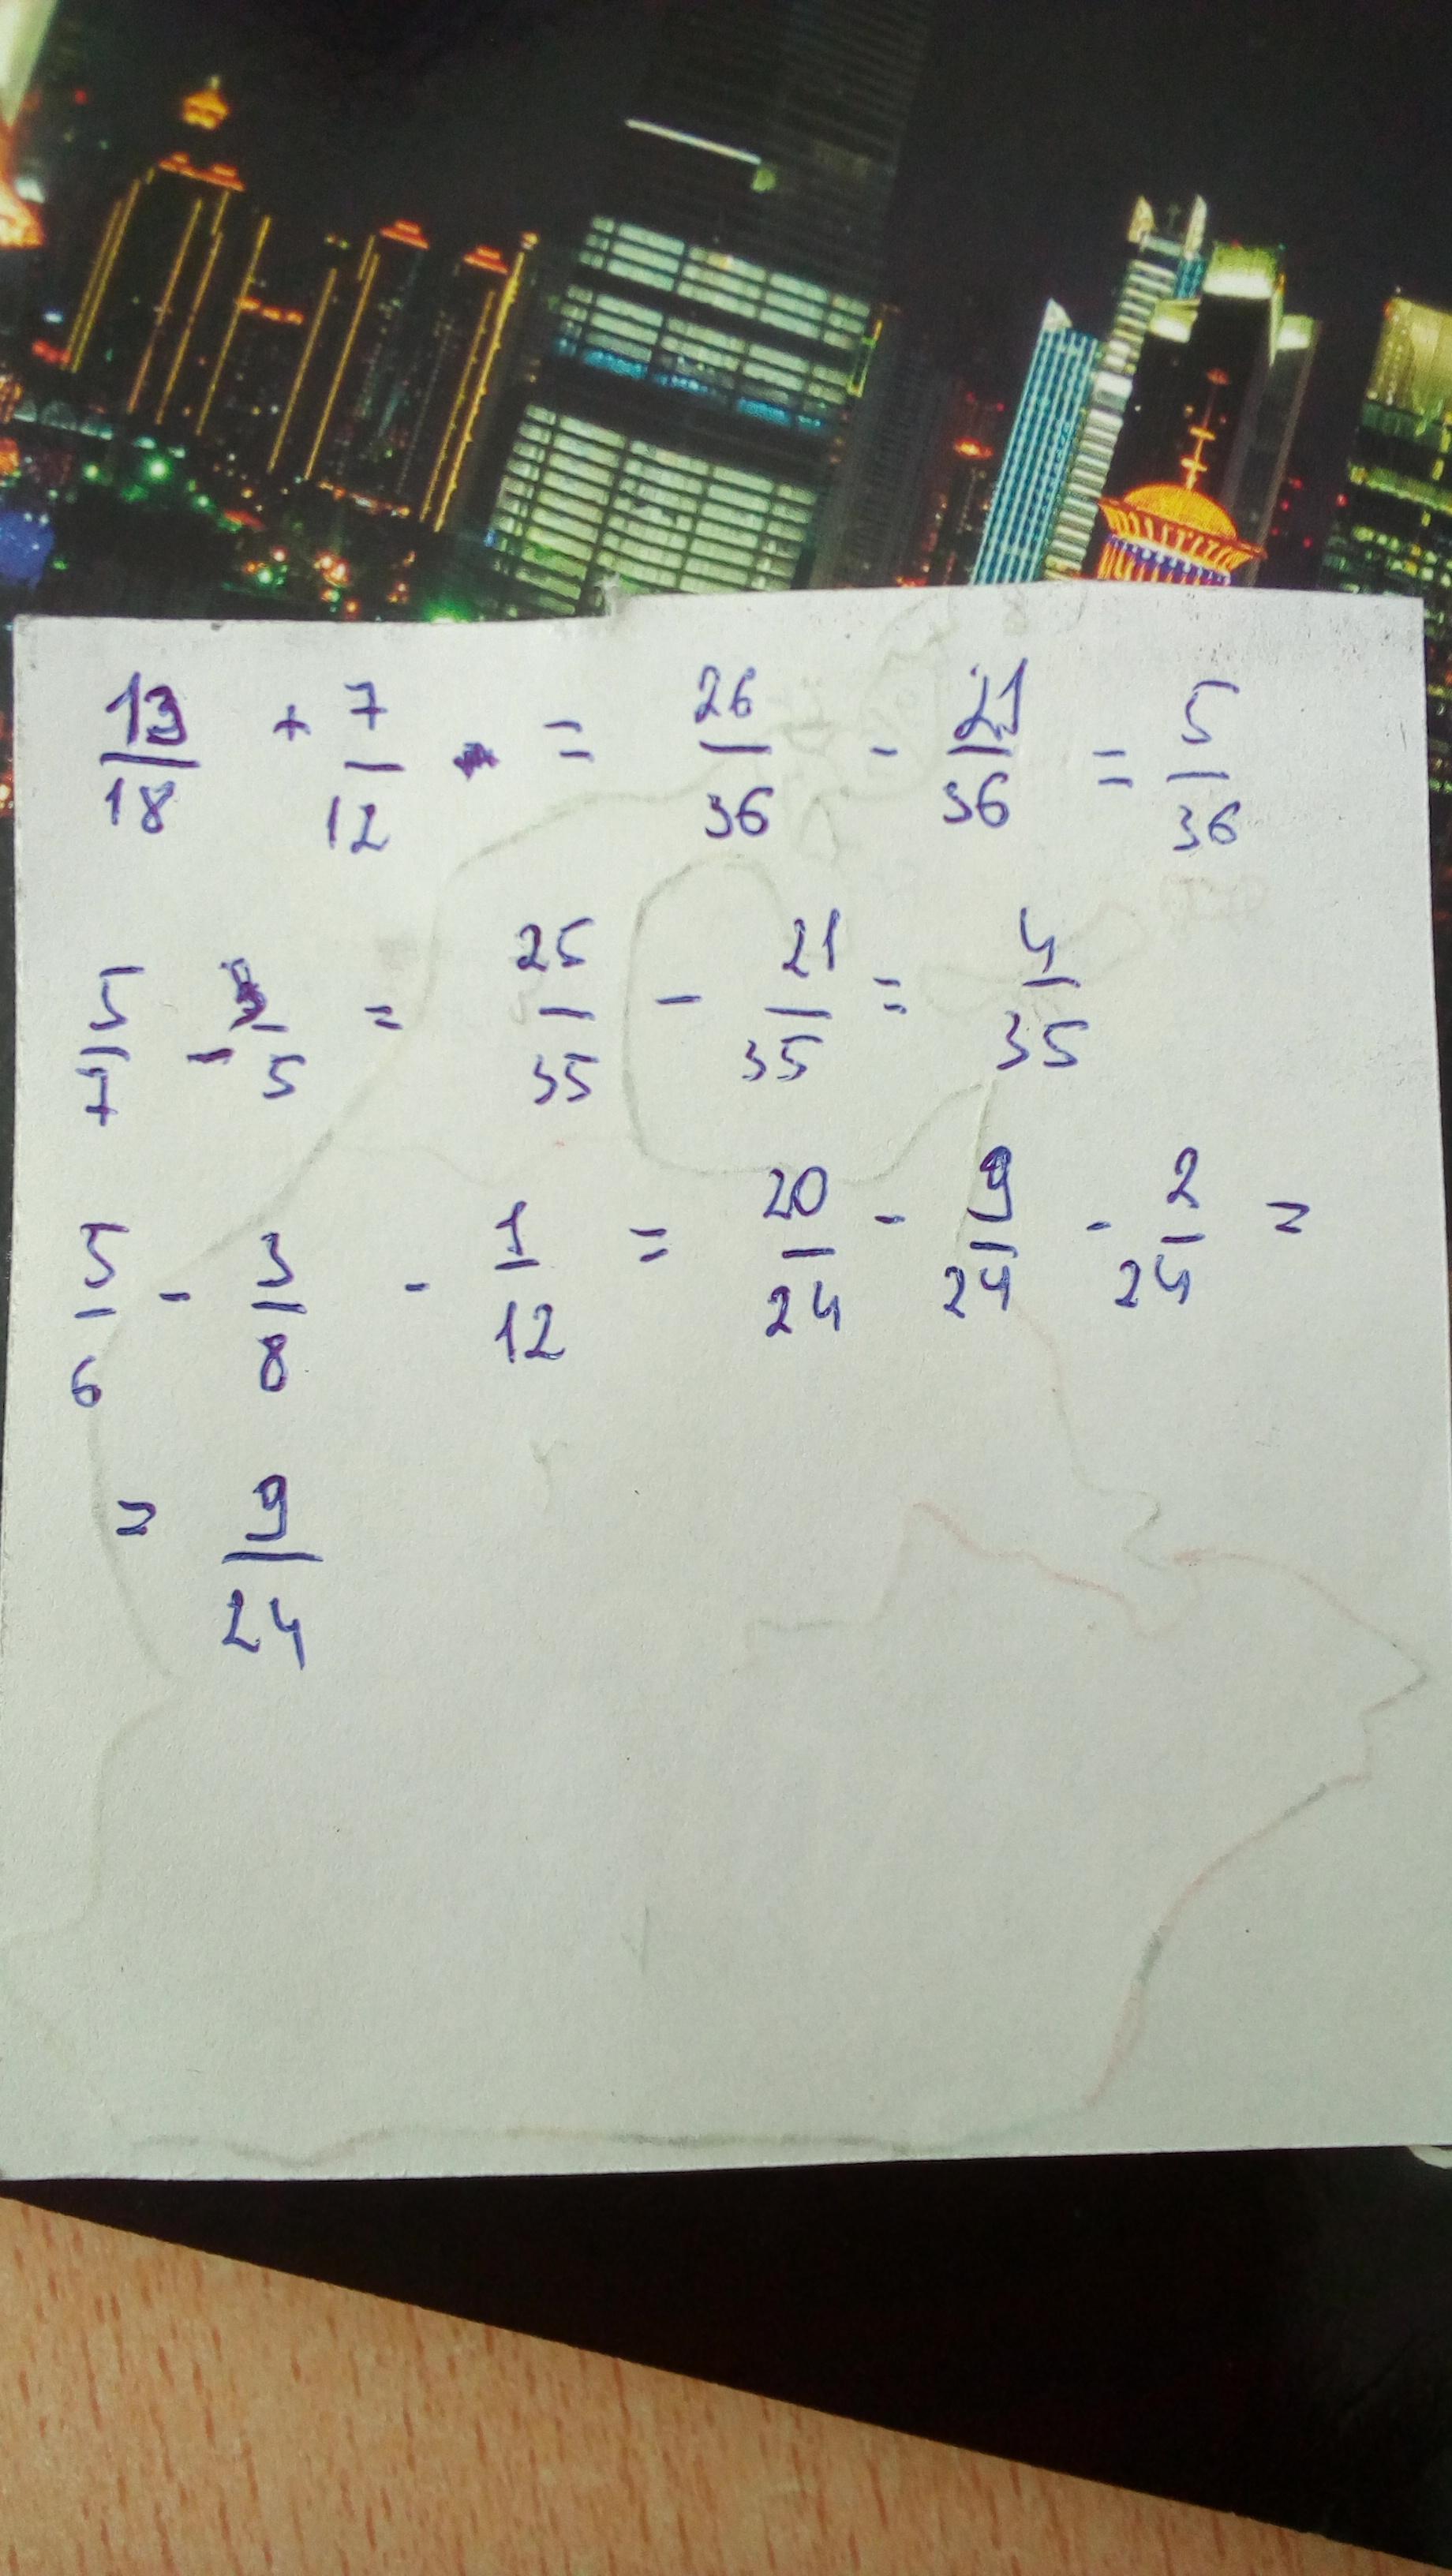 13/18 + 7/12 = 26/36 - 21/36 = 5/36
5/7 - 3/5 = 25/35 - 21/35 = 4/35
5/6 - 3/8 - 1/12 = 20/24 - 9/24 - 2/24 =
= 9/24